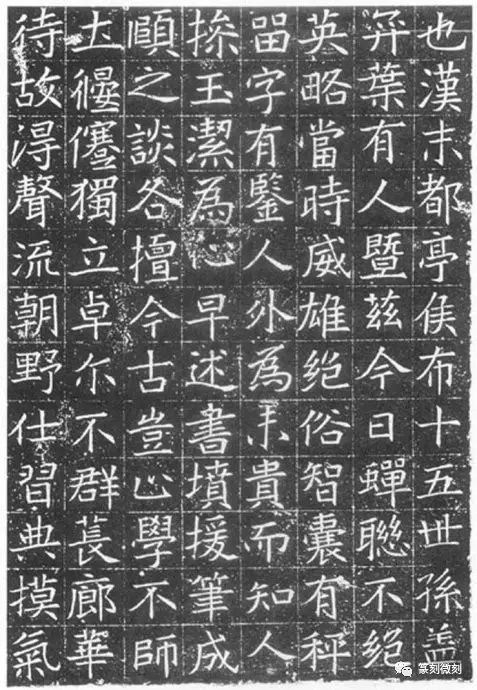 也漢末都亭侯布十五世孫蓋
弈葉有人暨兹今日蟬聯不絕
英略當時威雄絕俗智囊有稱
留字有鑒人外為未貴而知人
操玉潔為心早述書墳援筆成
頤之談各擅今古豈止學不師
士偃蹇獨立卓尔不群萇廊華
待故得聲流朝野仕習典摸氣
篆刻微刻